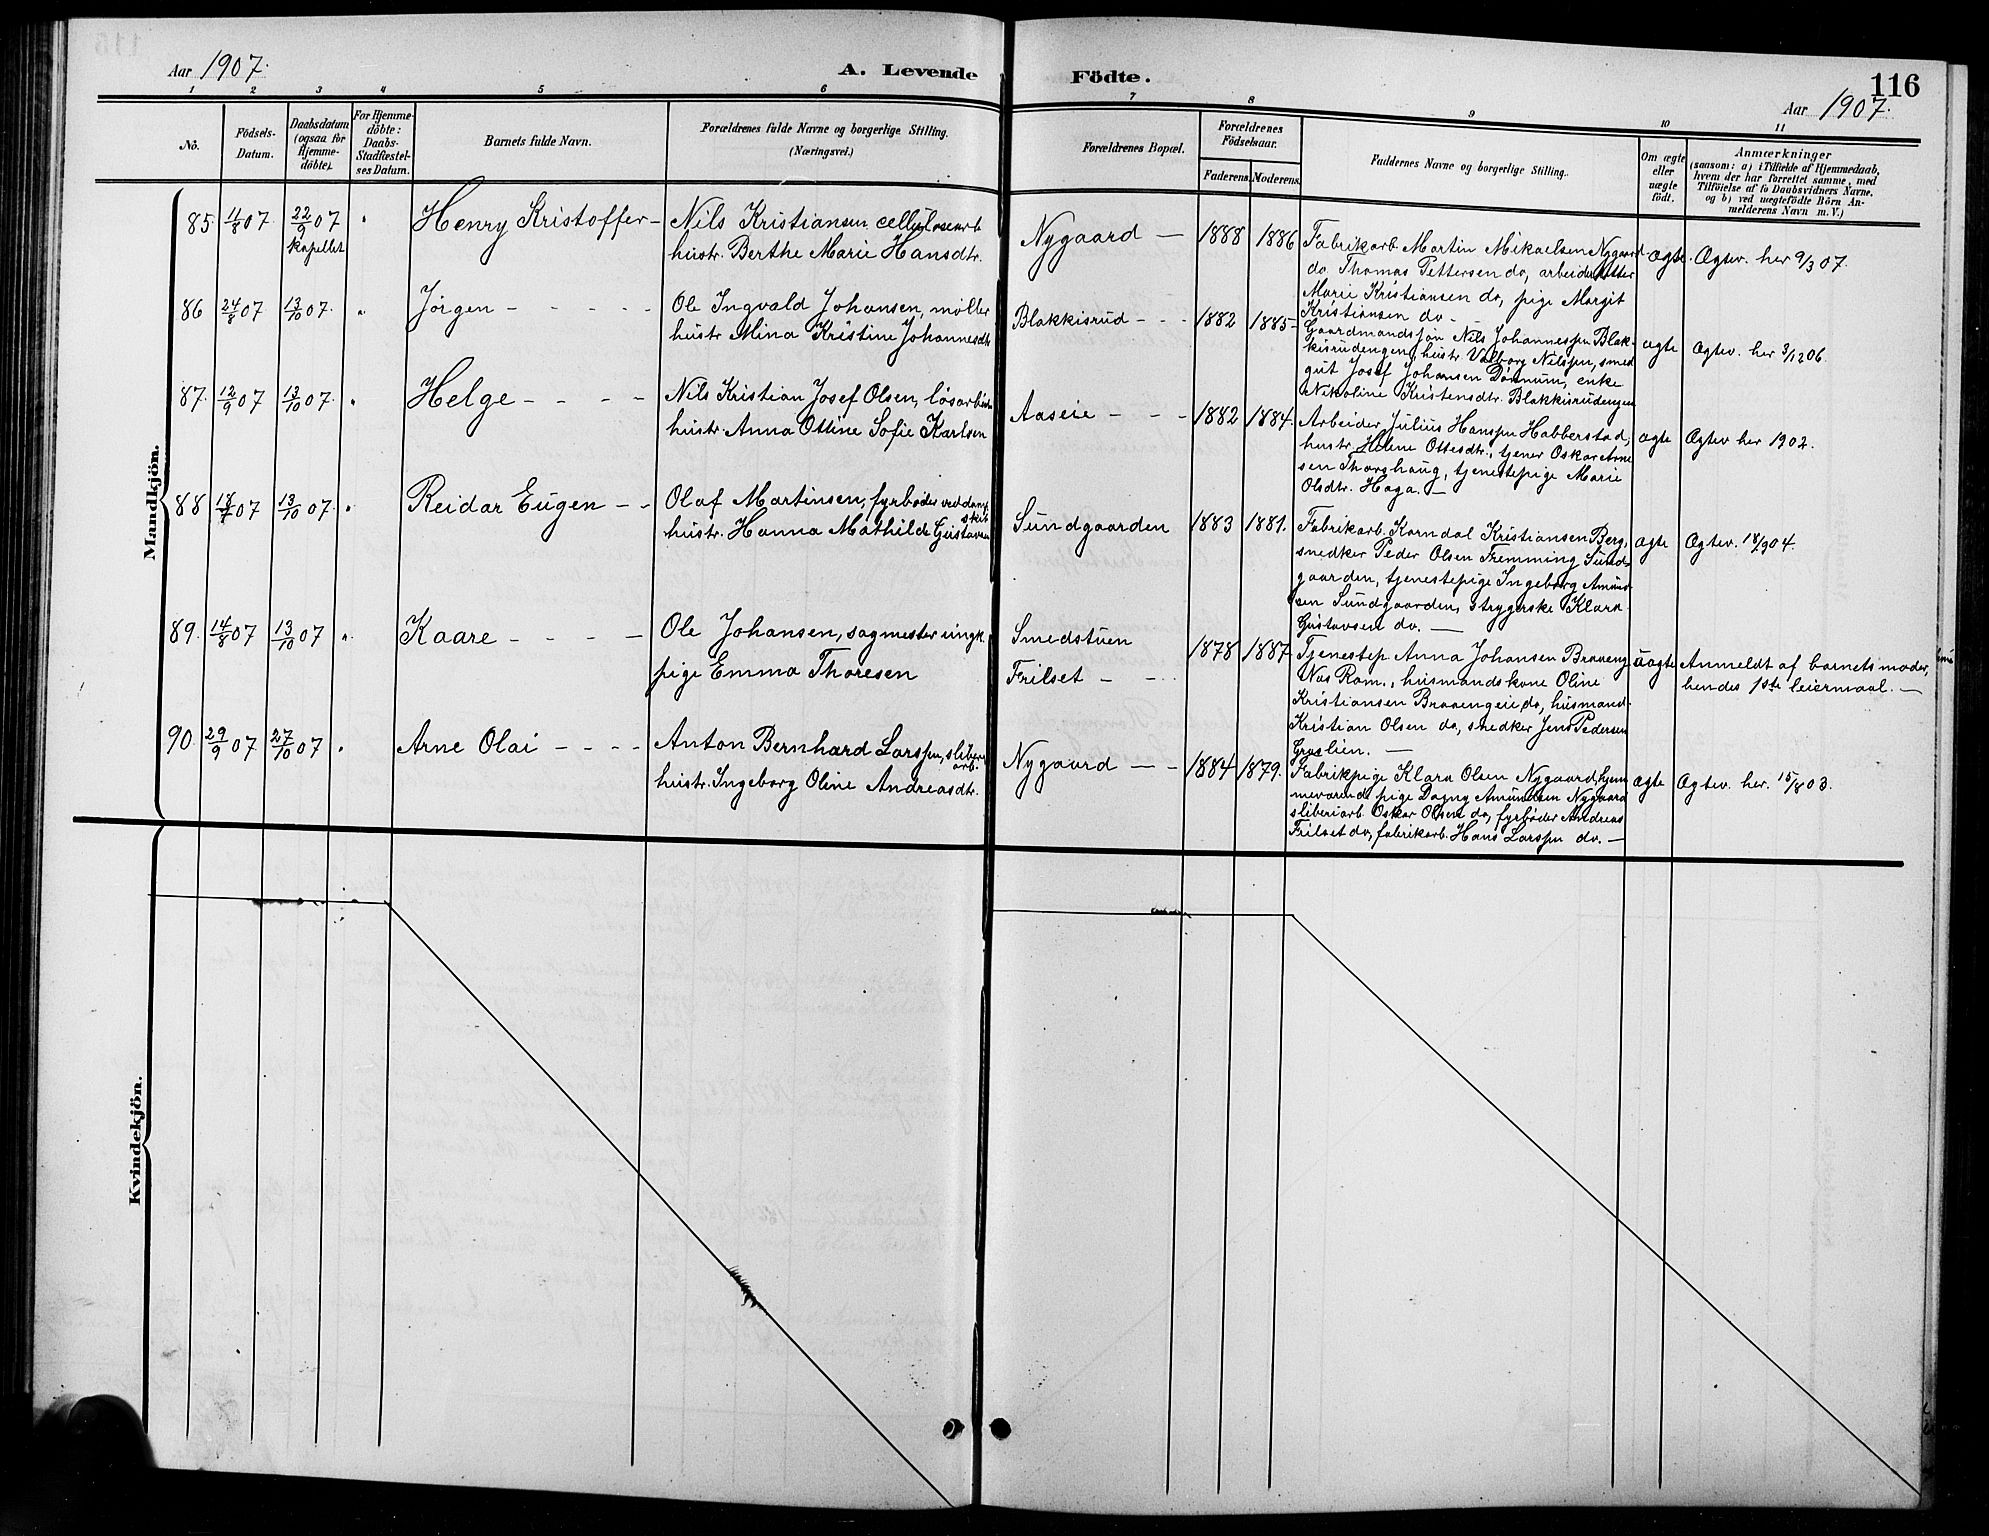 Aar 1907.
A. Levende Födte.
116
Aar 1907.
1 2 3 4 5 6 7 8 9 10 11
No.
Födsels-
Datum.
Daabsdatum
(ogsaa for
Hjemme-
döbte).
For Hjemme-
döbte:
Daabs-
Stadfæstel-
ses Datum.
Barnets fulde Navn.
Forældrenes fulde Navne og borgerlige Stilling.
(Næringsvei.)
Forældrenes Bopæl.
Forældrenes
Födselsaar.
Faderens.
Moderens.
Faddernes Navne og borgerlige Stilling.
Om ægte
eller
uægte
födt.
Anmærkninger
(saasom: a) i Tilfælde af Hjemmedaab,
hvem der har forrettet samme, med
Tilföielse af to Daabsvidners Navne.
og b) ved uægtefödte Börn An-
melderens Navn m. V.)
Mandkjön.
85. 1/8 07 22/9 07 " Henry Kristoffer — Nils Kristiansen cellulosearb.
kapellet
hustr. Berthe Marie Hansdtr.
Nygaard — 1888 1886
Fabrikarb. Martin Mikaelsen Nygaard
do. Thomas Pettersen do, arbeiderdatter
Marie Kristiansen do, pige Margit
Kristiansen do —
ægte. Ægtev. her 9/3 07.
86 24/8 07 13/10 07. " Jörgen - - - - Ole Ingvald Johansen, møller
hustr. Mina Kristine Johannesdtr.
Blakkisrud - - - 1882 1885
Gaardmandssøn Nils Johannessen Blak-
kisrudengen, hustr. Valborg Nilssen, smed
gut Josef Johansen Dönnum, enke
Nikoline Kristensdtr. Blakkisrudengen
ægte Ægtev. her 3/12 06.
87. 12/9 07 13/10 07. " Helge - - - - Nils Kristian Josef Olsen, løsarbeider
hustr. Anna Otline Sofie Karlsen
Aaseie - - - 1882 1884.
Arbeider Julius Hanssen Habberstad,
hustr. Helene Ottesdtr., tjener Oskar Arne
sen Thorshaug, tjenestepige Marie
Olsdtr. Haga. —
ægte Ægtev her 1902.
88 18/7 07 13/10 07. " Reidar Eugen - - Olaf Martinsen, fyrbøder ved damp
skib
hustr. Hanna Mathilde Gustavsen
Sundgaarden 1883 1881.
Fabrikarb. Karndal Kristiansen Berg,
snedker Peder Olsen Fremming Sund-
gaarden, tjenestepige Ingeborg Amund-
sen Sundgaarden, strygerske Klara
Gustavsen do. —
ægte Ægtev. 18/9 04.
89. 14/8 07 13/10 07 " Kaare - - - - Ole Johansen, sagmester ungk.
pige Emma Thoresen
Smedstuen
Frilset - - 1878 1887
Tjenestep. Anna Johansen Braaeng
Næs Rom., husmandskone Oline
Kristiansen Braaengeie do, husmand
Kristian Olsen do, snedker Jens Pedersen
Graslien. —
uægte Anmeldt af barnets moder,
hendes 1ste leiermaal. —
90. 29/9 07 27/10 07 " Arne Olai - - - - Anton Bernhard Larssen, sliberi
arb.
hustr. Ingeborg Oline Andreasdtr.
Nygaard — — 1884 1879.
Fabrikpige Klara Olsen Nygaard, hjem
meværende pige Dagny Amundsen Nygaard
sliberiarb. Oskar Olsen do, fyrbøder Andreas
Frilset do, fabrikarb. Hans Larssen do. —
ægte Ægtev. her. 15/8 03.
Kvindekjön.